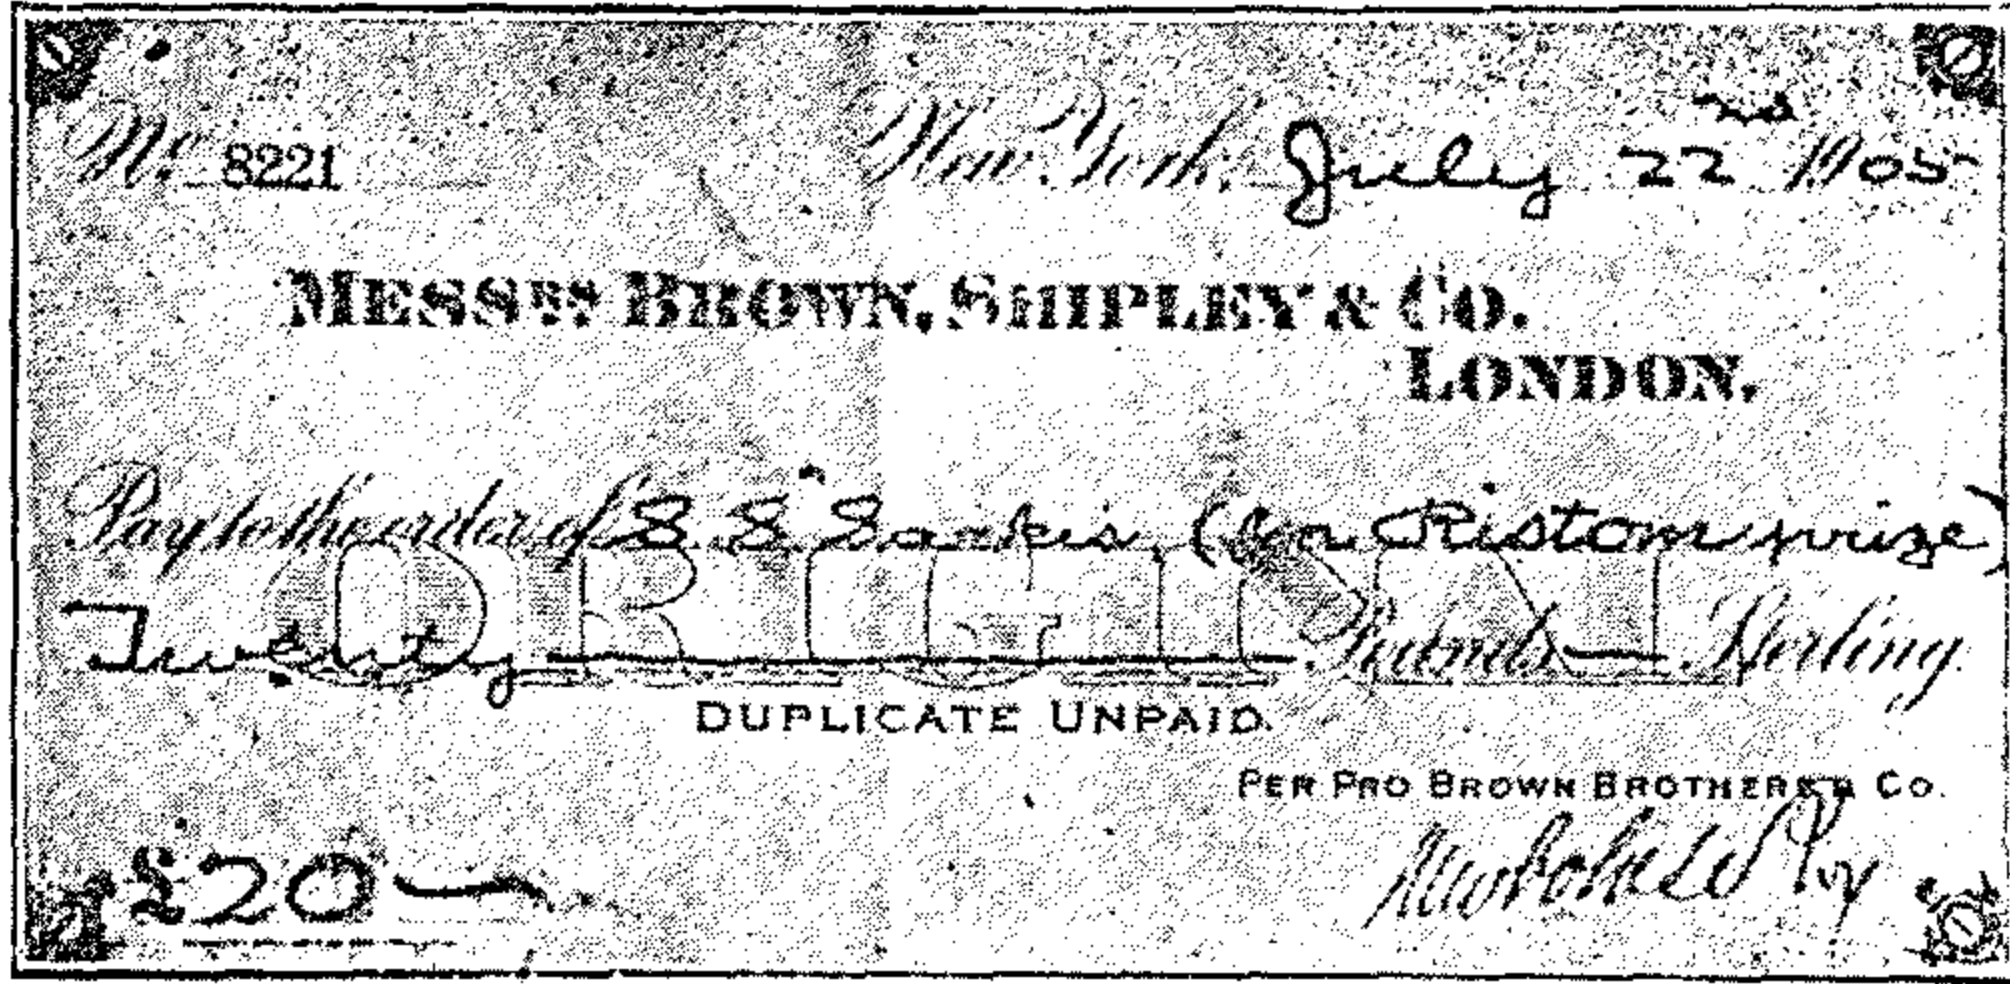 No. 8221 New York, July 22nd 1905
MESSRS BROWN, SHIPLEY & CO.
LONDON.
Pay to the order of S. S. Sarkis, ( Ristom prize)
ORIGINAL
Twenty Pounds Sterling.
DUPLICATE UNPAID.
PER PRO BROWN BROTHERS & CO.
£20